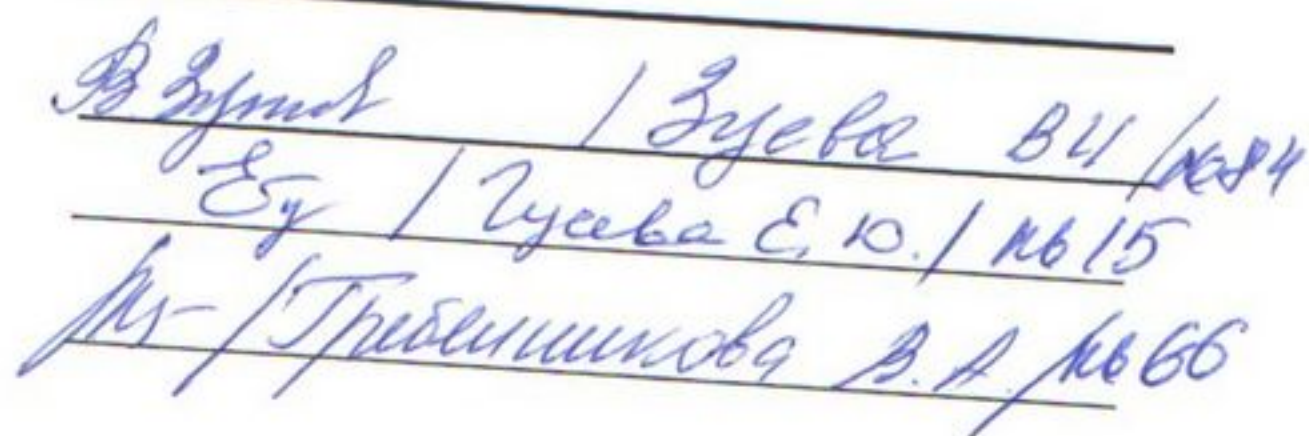 / Зуева В И / кв 84
/ Гусева Е. Ю. / кв 15
/ Гребенщикова В. А. / кв 66